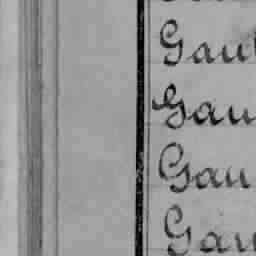 Gau
Gau
Gau
Gau